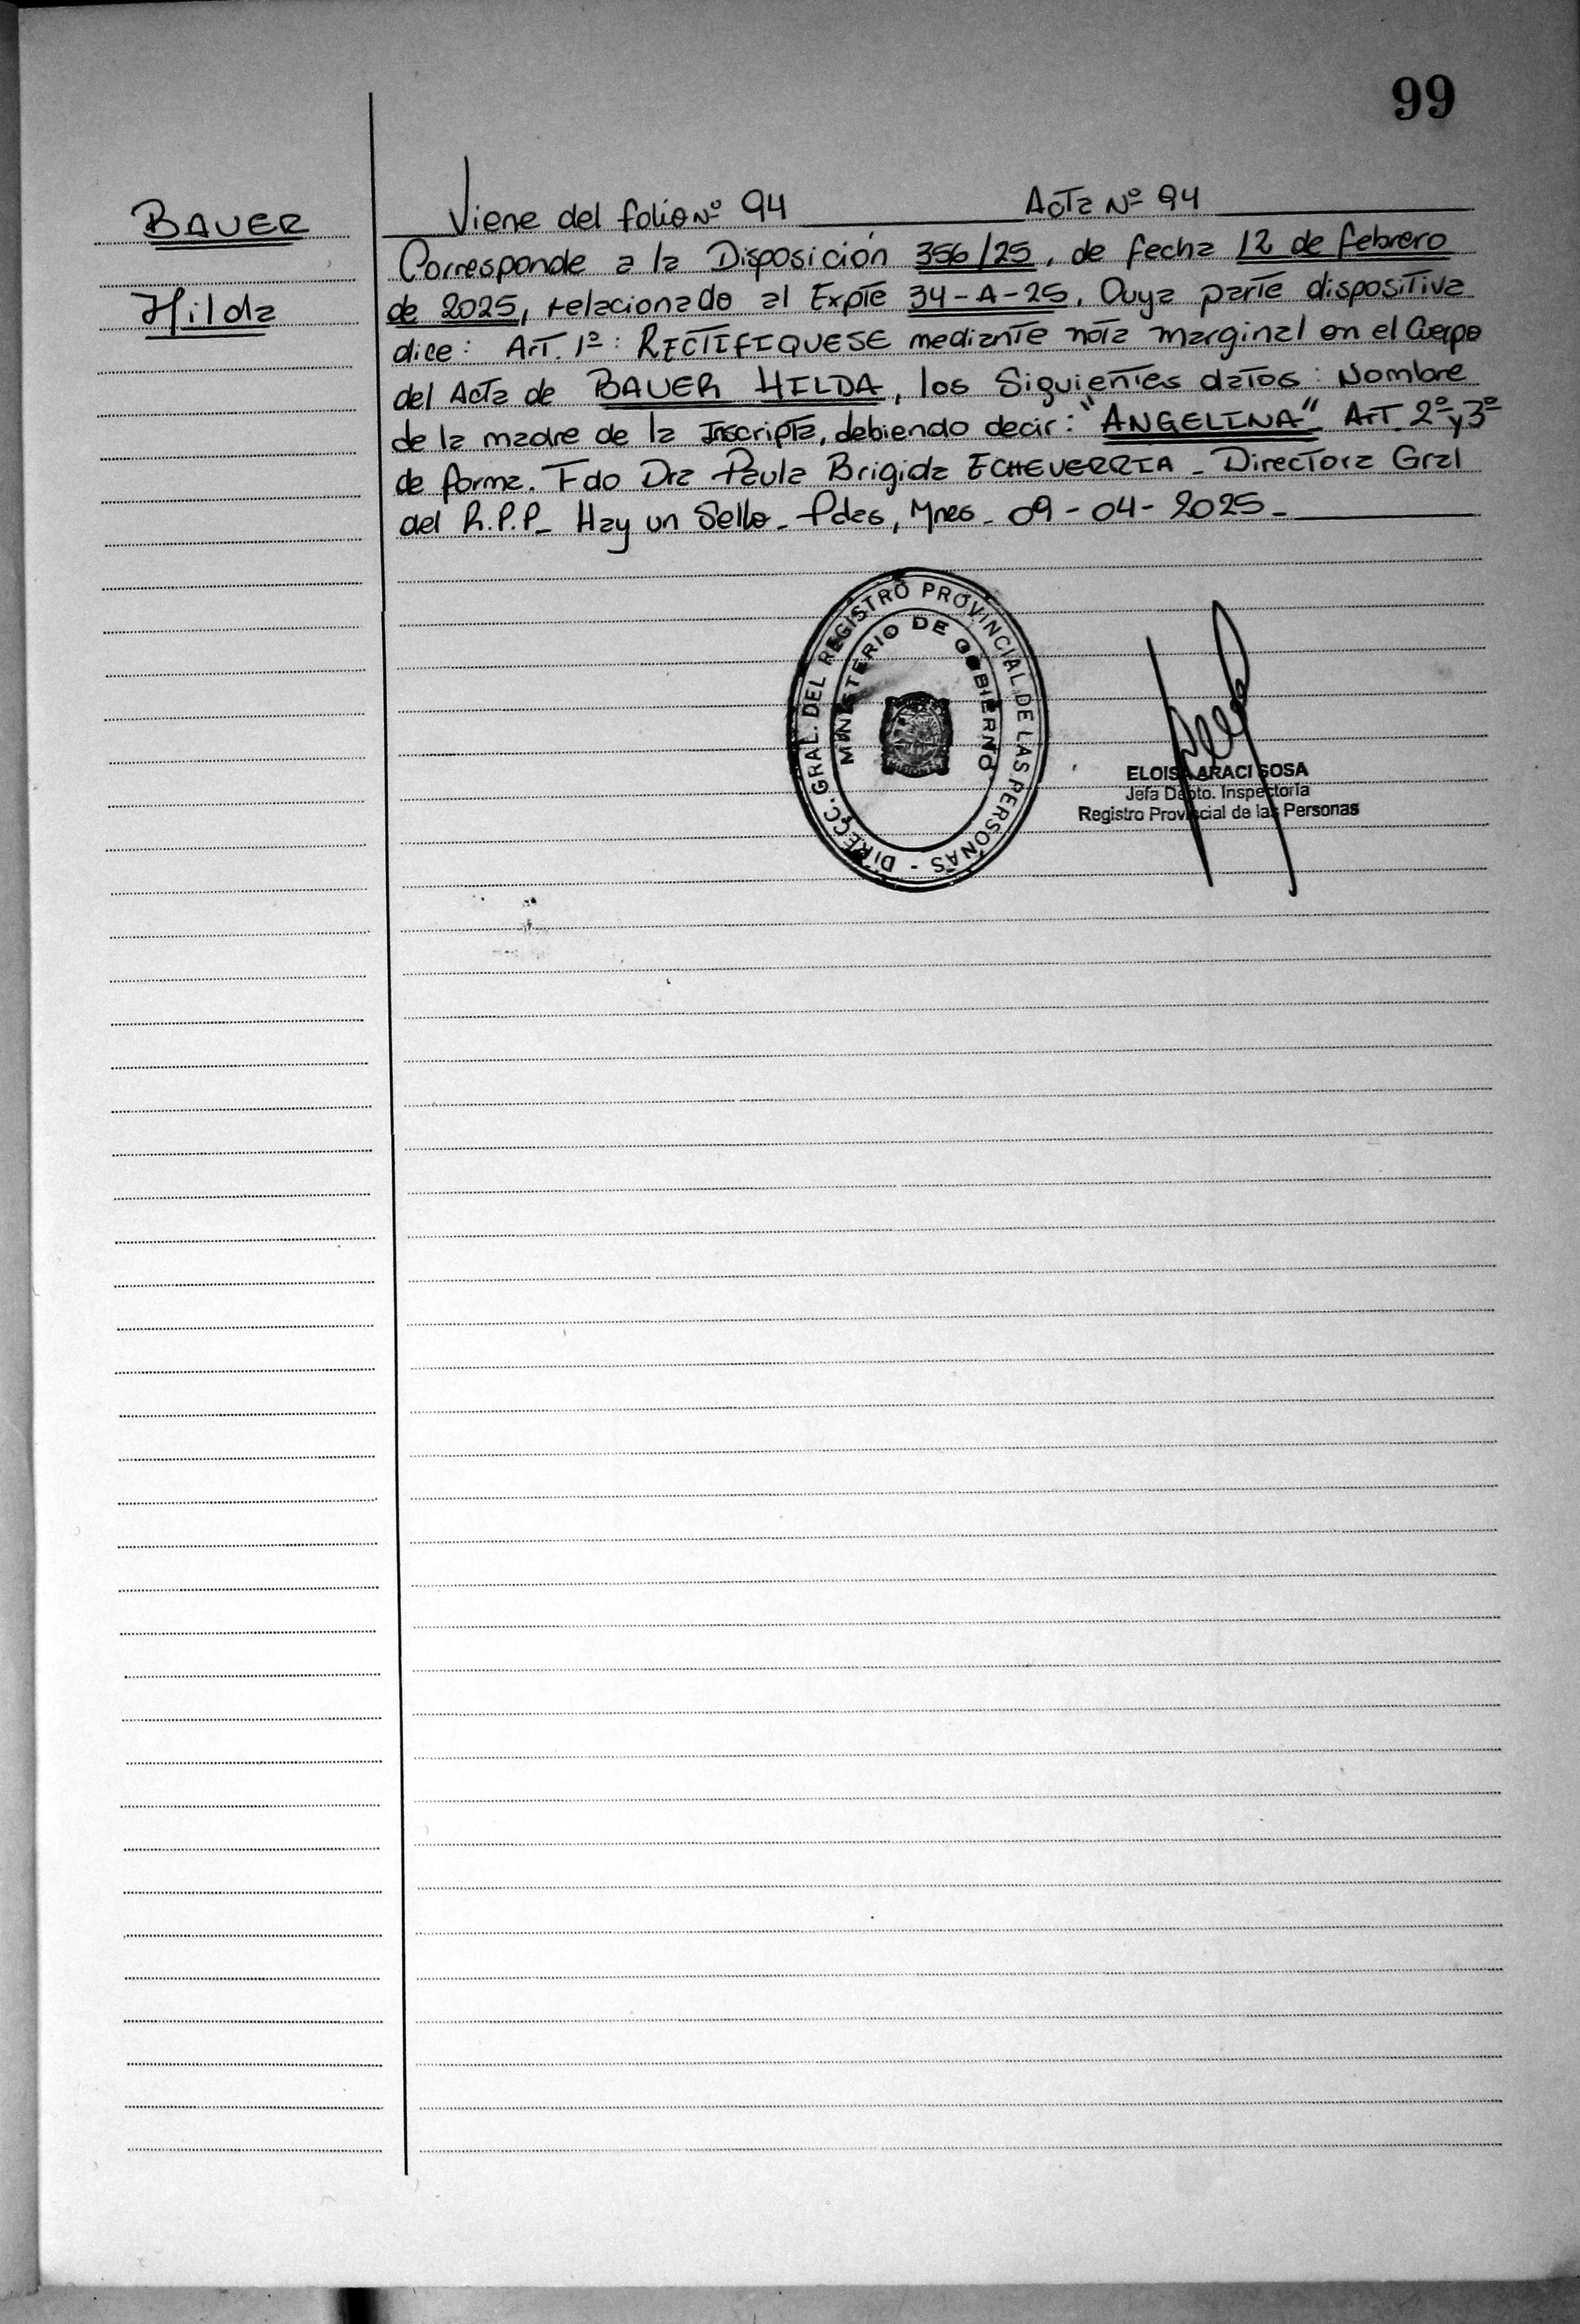 99
BAUER
Hilda
Viene del folio Nº 94 Acta Nº 94
Corresponde a la Disposición 356/25, de fecha 12 de febrero
de 2025, relacionado al Expte 34-A-25, Cuya parte dispositiva
dice: Art. 1º: RECTIFIQUESE mediante nota marginal en el Cuerpo
del Acta de BAUER HILDA, los Siguientes datos: Nombre
de la madre de la Inscripta, debiendo decir: "ANGELINA" Art. 2º y 3º
de forma. Fdo Dra Paula Brigida ECHEVERRIA - Directora Gral
del R.P.P- Hay un Sello- Pdas, Mnes- 09-04-2025-
DIRECC. GRAL. DEL REGISTRO PROVINCIAL DE LAS PERSONAS -
MINISTERIO DE GOBIERNO
ELOISA ARACI SOSA
Jefa Dpto. Inspectoría
Registro Provincial de las Personas